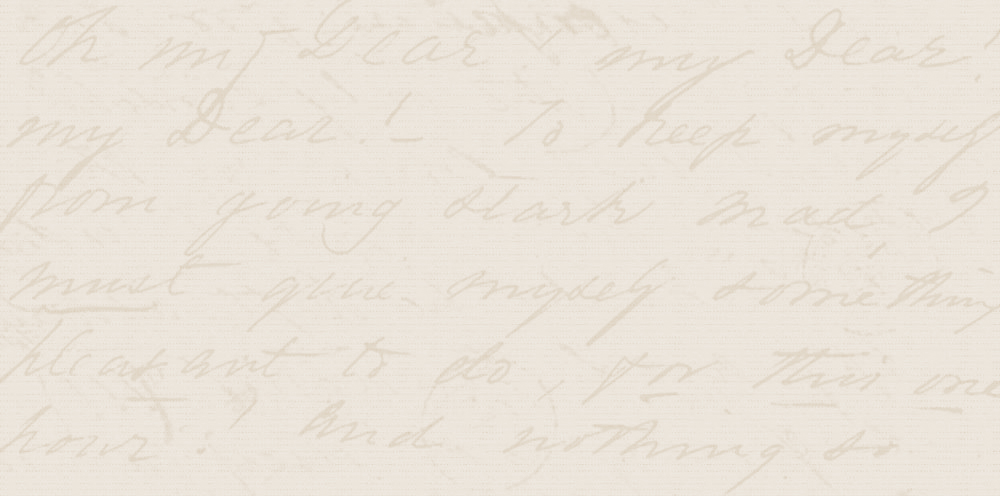 Oh my Dear! my Dear!
my Dear! — To keep myself
from going stark mad I
must give myself something
pleasant to do, for this one
hour! And nothing so